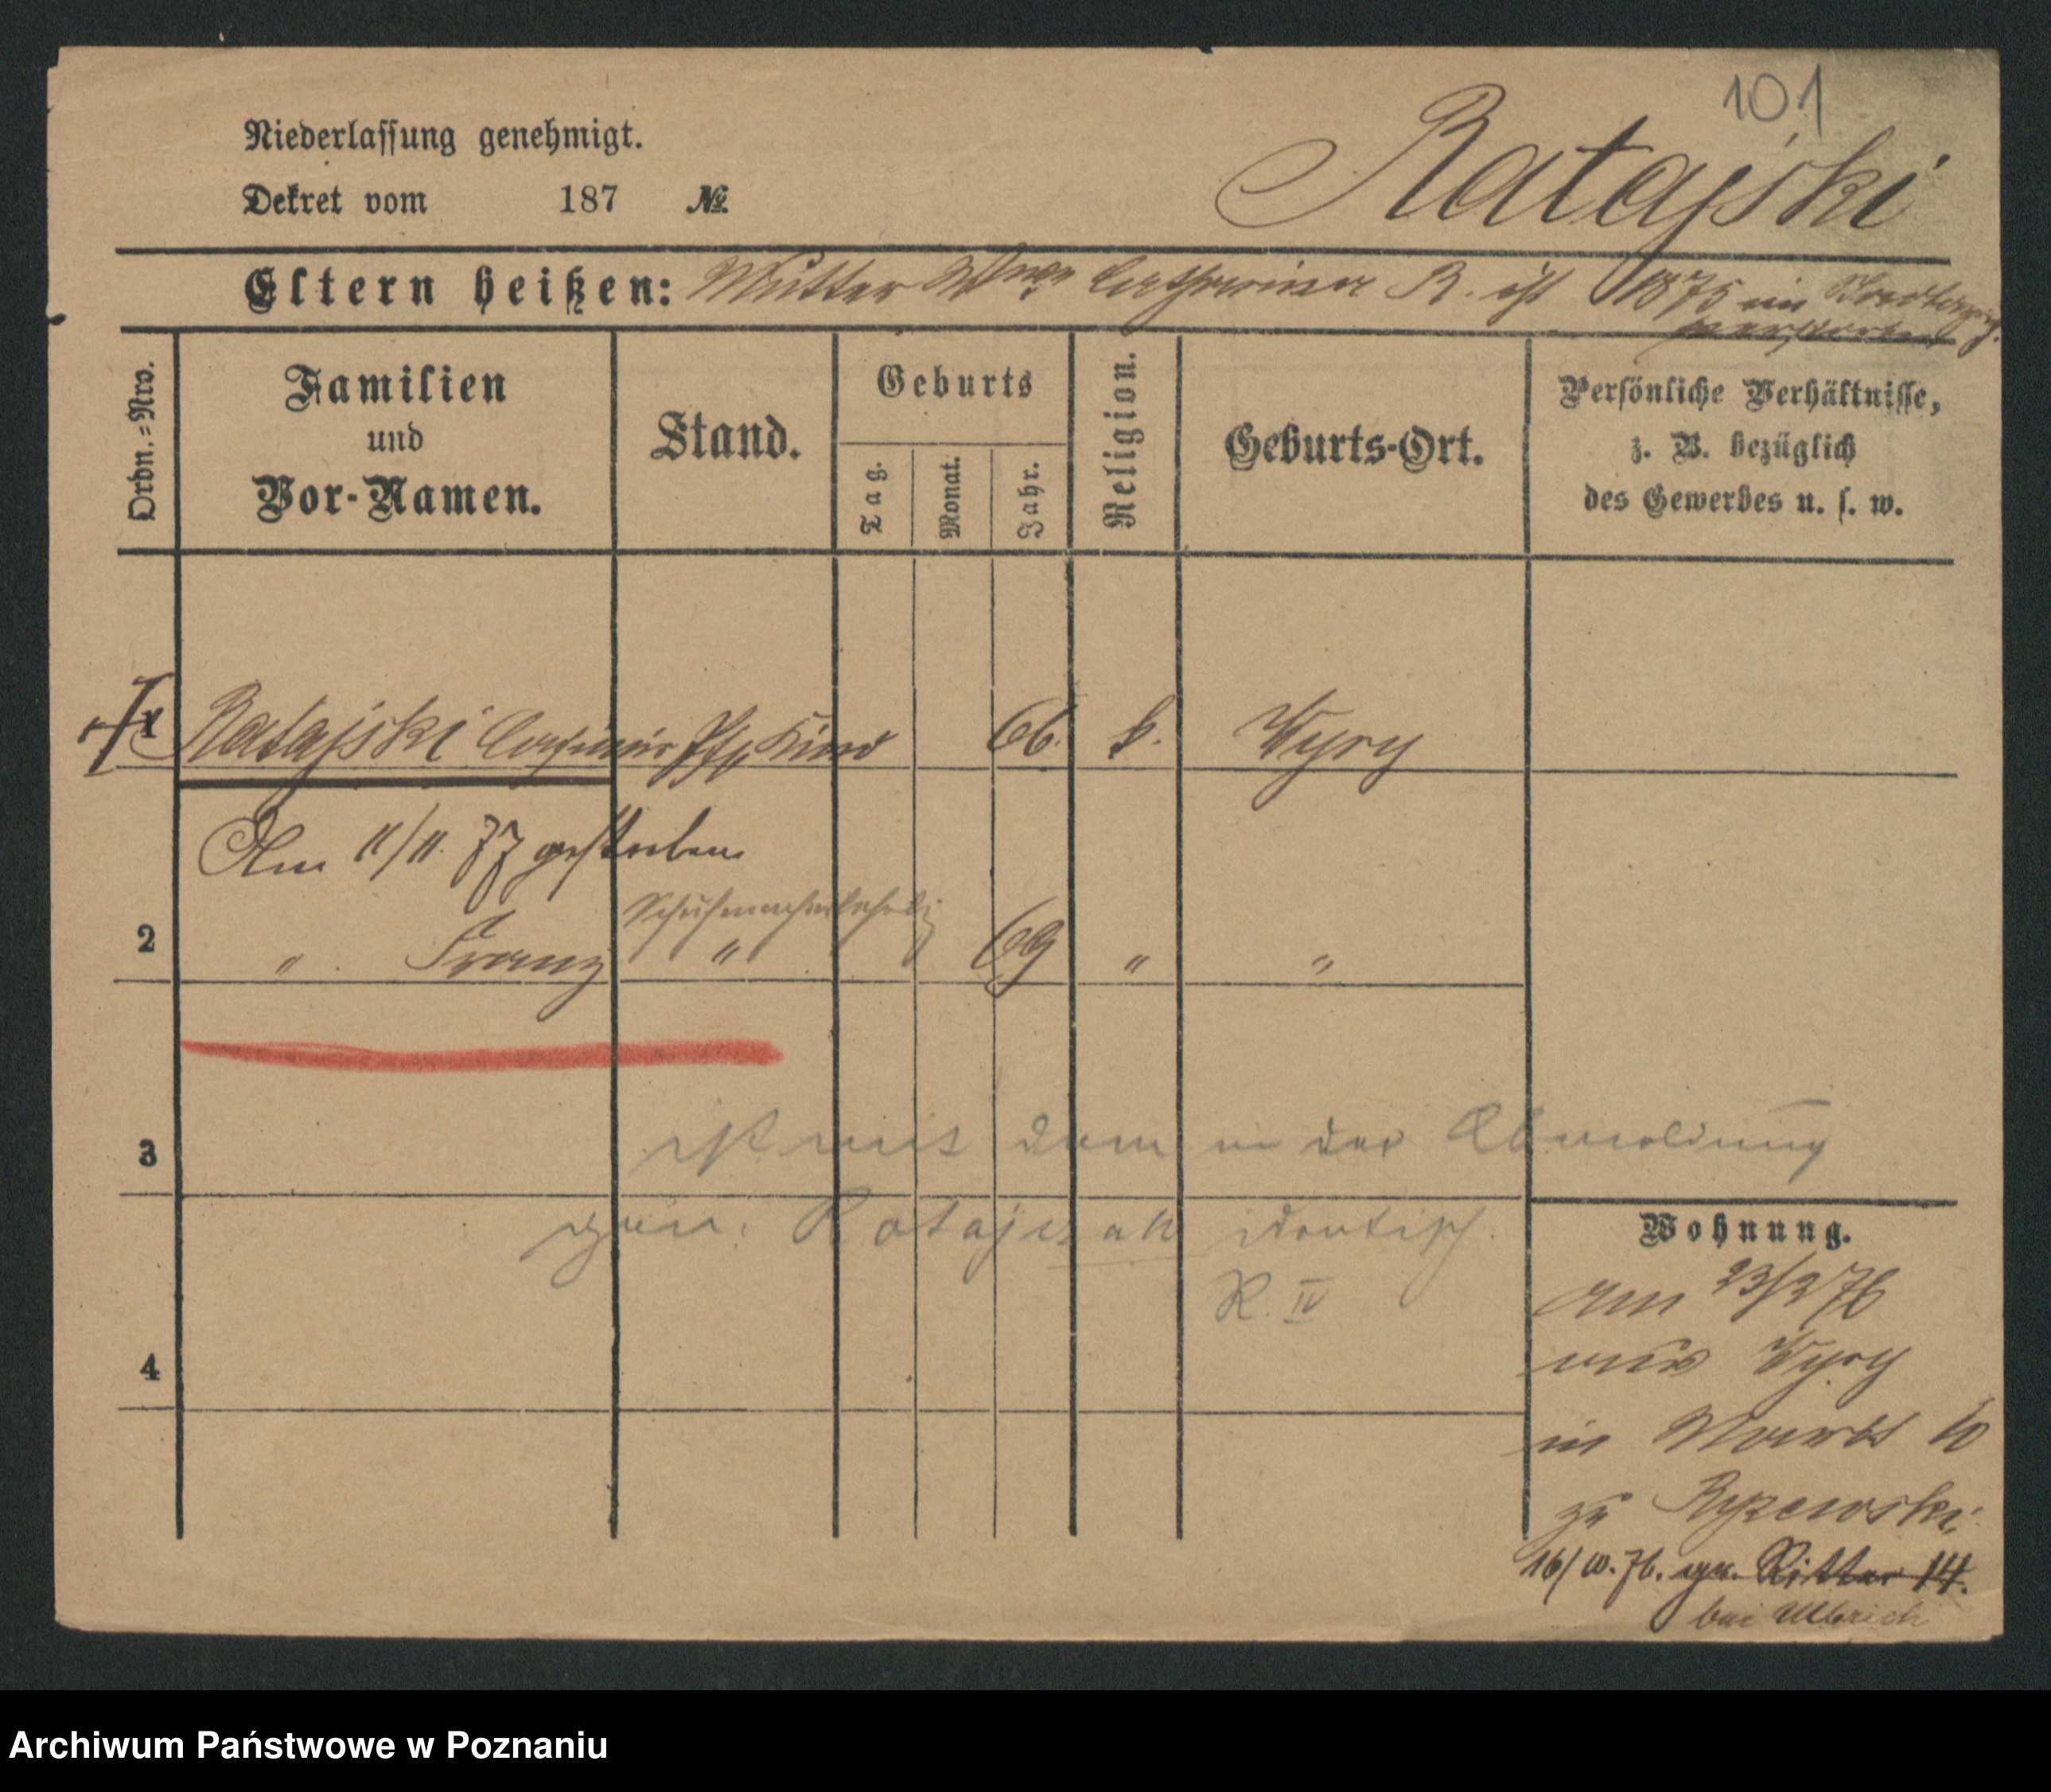 101
Niederlassung genehmigt.
Ratajski
Dekret vom 187 №
Eltern heißen: Mutter Wwe Catharina R. ist 1875 im
verstorben
Ordn.=Nro.
Familien und Vor-Namen.
Stand.
Geburts
Tag.
Monat.
Jahr.
Religion.
Geburts-Ort.
Persönliche Verhältnisse,
z. B. bezüglich
des Gewerbes u. s. w.
1 Ratajski Casimir Pfl. Kind 66. k. Wyry
Am 11/11. 77 gestorben
Schuhmacherlehrlg
2 " Franz " 69 " "
3 ist mit dem in der Abmeldung
gen. Ratajczak identisch.
R. IV
4
Wohnung.
Am 23/2 76
aus Wyry
in 10
zu Ryzewski
16/10. 76. Ritter 14.
bei Ulbrich
Archiwum Państwowe w Poznaniu